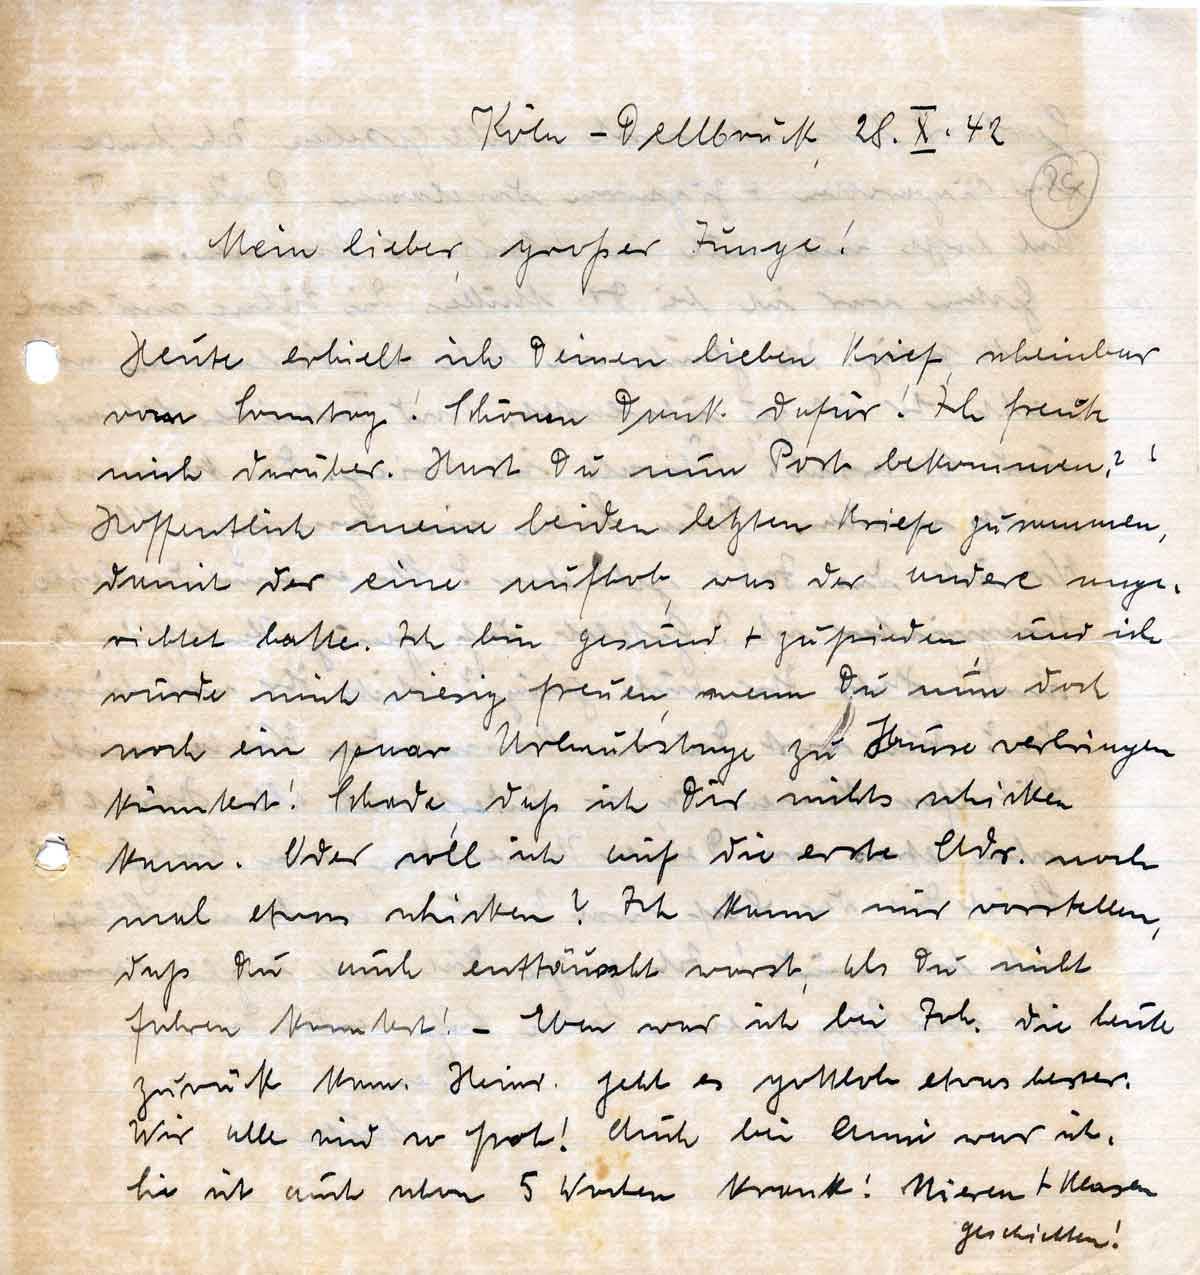 Köln – Dellbrück, 28. X. 42
Mein lieber, großer Junge!
Heute erhielt ich Deinen lieben Brief, scheinbar
vom Sonntag! Schönen Dank dafür! Ich freute
mich darüber. Hast Du nun Post bekommen?!
Hoffentlich meine beiden letzten Briefe zusammen,
damit der eine aufhob, was der andere ange-
richtet hatte. Ich bin gesund + zufrieden, und ich
würde mich riesig freuen, wenn Du nun doch
noch ein paar Urlaubstage zu Hause verbringen
könntest! Schade, daß ich Dir nichts schicken
kann. Oder soll ich auf die erste Adr. noch
mal etwas schicken? Ich kann mir vorstellen,
daß Du auch enttäuscht warst, als Du nicht
fahren konntest! – Eben war ich bei Joh. die heute
zurück kam. Heinr. geht es gottlob etwas besser.
Wir alle sind so froh! Auch bei Anni war ich.
Sie ist auch schon 5 Wochen krank! Nieren + Blasen
geschichten!